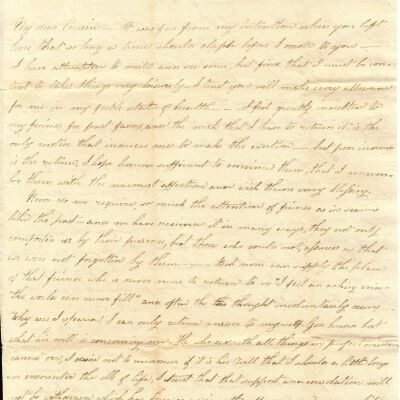 My dear Cousin — It was far from my intention when you left
here that so long a time should elapse before I wrote to you —
I have attention to write ann see some, but find that I must be con-
tent to take things very leisurely I trust you will make every allowance
for me in my feeble state of health — I feel greatly indebted to
my friends for past favors, and the wish that I have to return it is the
only motive that induces me to make the exertion — but poor
is the return, I hope however sufficient to convince them, that I remem-
ber them with the warmest affection and wish them every blessing.
Never do we require so much the attention of friends as in seasons
like the past — and we have received it in many ways, they not only
comforted us by their presence, but those who could not, assured us that
we were not forgotten by them — But none can supply the place
of that friend who is never more to return to us "I feel an aching once"
"the world can never fill" and often the thought involuntarily occurs
Why was I spared I can only return answer to myself God knows best
what his will is concerning me. He who doeth all things in perfect wisdom
cannot err, I desire not to murmur if it is his will that I should a little longer
encounter the ills of life, I trust that that support and consolation will
not be withdrawn which